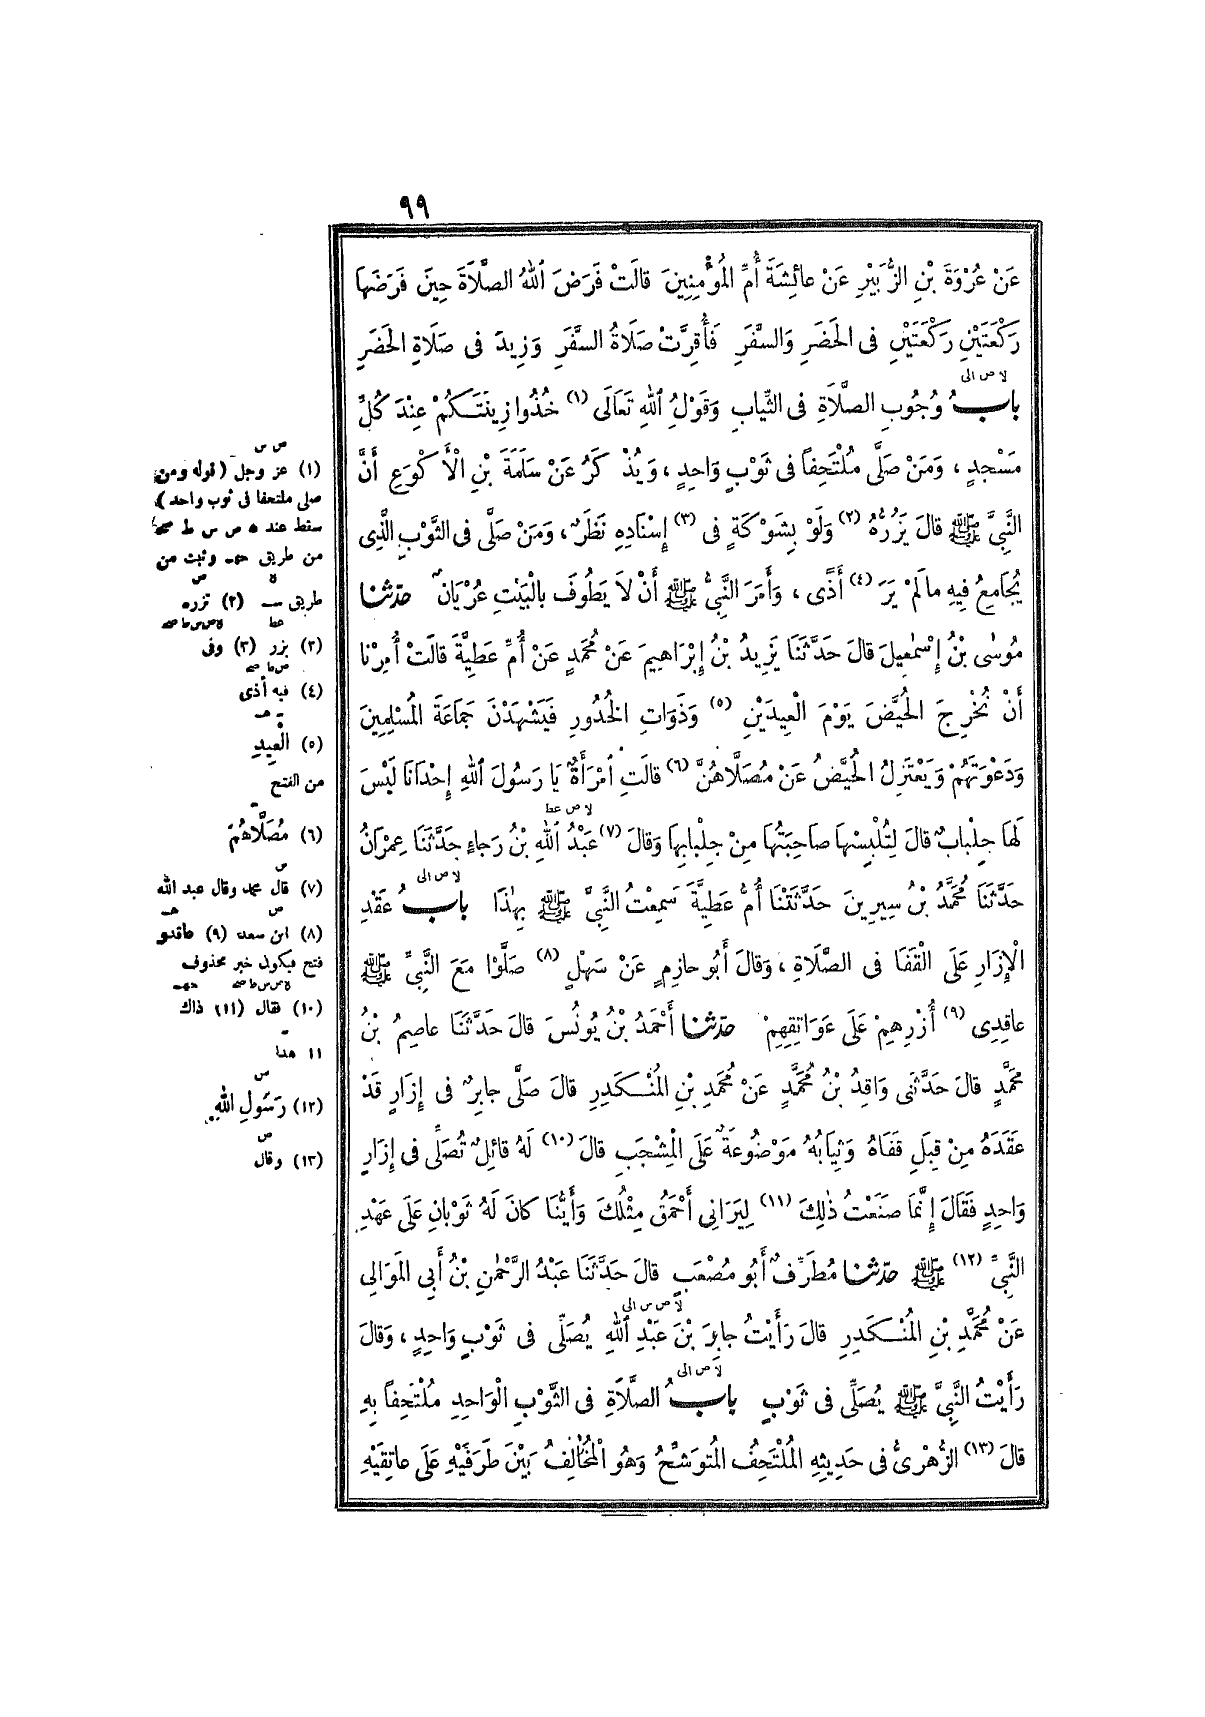 ٩٩
عَنْ عُرْوَةَ بْنِ الزُّبَيْرِ عَنْ عائِشَةَ أُمِّ الْمُؤْمِنِينَ قالَتْ فَرَضَ اللهُ الصَّلَاةَ حِينَ فَرَضَهَا
رَكْعَتَيْنِ رَكْعَتَيْنِ فى الحَضَرِ وَالسَّفَرِ فَأُقِرَّتْ صَلَاةُ السَّفَرِ وَزِيدَ فى صَلَاةِ الحَضَرِ
لا ص الى
بابُ وُجُوبِ الصَّلَاةِ فى الثِّيابِ وَقَوْلُ اللهِ تَعَالَى (١) خُذُوا زِينَتَكُمْ عِنْدَ كُلِّ
مَسْجِدٍ ، وَمَنْ صَلَّى مُلْتَحِفاً فى ثَوْبٍ وَاحِدٍ ، وَيُذْكَرُ عَنْ سَلَمَةَ بْنِ الْأَكْوَعِ أَنَّ
النَّبِيَّ ﷺ قالَ يَزُرُّهُ (٢) وَلَوْ بِشَوْكَةٍ فى (٣) إِسْنَادِهِ نَظَرٌ ، وَمَنْ صَلَّى فى الثَّوْبِ الَّذِى
يُجَامِعُ فِيهِ مالَمْ يَرَ (٤) أَذًى ، وَأَمَرَ النَّبِيُّ ﷺ أَنْ لاَ يَطُوفَ بِالْبَيْتِ عُرْيَانٌ حدّثنا
مُوسَى بْنُ إِسْمٰعِيلَ قالَ حَدَّثَنَا يَزِيدُ بْنُ إِبْرَاهِيمَ عَنْ مُحَمَّدٍ عَنْ أُمِّ عَطِيَّةَ قالَتْ أُمِرْنَا
أَنْ نُخْرِجَ الحُيَّضَ يَوْمَ الْعِيدَيْنِ (٥) وَذَوَاتِ الخُدُورِ فَيَشْهَدْنَ جَمَاعَةَ المُسْلِمِينَ
وَدَعْوَتَهُمْ وَيَعْتَزِلُ الحُيَّضُ عَنْ مُصَلَّاهُنَّ (٦) قالَتِ امْرَأَةٌ يَا رَسُولَ اللهِ إِحْدَانَا لَيْسَ
لا ص عط
لَهَا جِلْبابٌ قالَ لِتُلْبِسْهَا صَاحِبَتُهَا مِنْ جِلْبابِهَا وَقالَ (٧) عَبْدُ اللهِ بْنُ رَجاءٍ حَدَّثَنَا عِمْرَانُ
لا ص الى
حَدَّثَنَا مُحَمَّدُ بْنُ سِيرِينَ حَدَّثَتْنَا أُمُّ عَطِيَّةَ سَمِعْتُ النَّبِيَّ ﷺ بِهٰذَا بابُ عَقْدِ
الْإِزَارِ عَلَى الْقَفَا فى الصَّلَاةِ ، وَقالَ أَبُو حازِمٍ عَنْ سَهْلٍ (٨) صَلَّوْا مَعَ النَّبِيِّ ﷺ
عاقِدِى (٩) أُزْرِهِمْ عَلَى عَوَاتِقِهِمْ حدّثنا أَحْمَدُ بْنُ يُونُسَ قالَ حَدَّثَنَا عاصِمُ بْنُ
مُحَمَّدٍ قالَ حَدَّثَنِى وَاقِدُ بْنُ مُحَمَّدٍ عَنْ مُحَمَّدِ بْنِ المُنْكَدِرِ قالَ صَلَّى جابِرٌ فى إِزَارٍ قَدْ
عَقَدَهُ مِنْ قِبَلِ قَفَاهُ وَثِيابُهُ مَوْضُوعَةٌ عَلَى الْمِشْجَبِ قالَ (١٠) لَهُ قائِلٌ تُصَلِّى فى إِزَارٍ
وَاحِدٍ فَقَالَ إِنَّمَا صَنَعْتُ ذٰلِكَ (١١) لِيَرَانِى أَحْمَقُ مِثْلُكَ وَأَيُّنَا كانَ لَهُ ثَوْبانِ عَلَى عَهْدِ
النَّبِيِّ (١٢) ﷺ حدّثنا مُطَرِّفٌ أَبُو مُصْعَبٍ قالَ حَدَّثَنَا عَبْدُ الرَّحْمٰنِ بْنُ أَبِى المَوَالِى
لا ص س الى
عَنْ مُحَمَّدِ بْنِ المُنْكَدِرِ قالَ رَأَيْتُ جابِرَ بْنَ عَبْدِ اللهِ يُصَلِّى فى ثَوْبٍ وَاحِدٍ ، وَقالَ
لا ص الى
رَأَيْتُ النَّبِيَّ ﷺ يُصَلِّى فى ثَوْبٍ بابُ الصَّلَاةِ فى الثَّوْبِ الْوَاحِدِ مُلْتَحِفاً بِهِ
قالَ (١٣) الزُّهْرِىُّ فى حَدِيثِهِ المُلْتَحِفُ المُتَوَشِّحُ وَهُوَ الْمُخَالِفُ بَيْنَ طَرَفَيْهِ عَلَى عاتِقَيْهِ
ص س
(١) عز وجل (قوله ومن
صلى ملتحفا فى ثوب واحد)
سقط عند ه ص س ط
من طريق حمـ وثبت من
ه ص
طريق (٢) تزره
(٢) يزر (٣) وفى
(٤) فيه أذى
(٥) الْعِيدِ
من الفتح
(٦) مُصَلَّاهُمْ
ص
(٧) قال محمد وقال عبد الله
ص
(٨) ابن سعد (٩) عاقدو
فتح فيكون خبر محذوف
(١٠) فقال (١١) ذاك
١١ هذا
ص
(١٢) رَسُولِ اللهِ
ص
(١٣) وقال